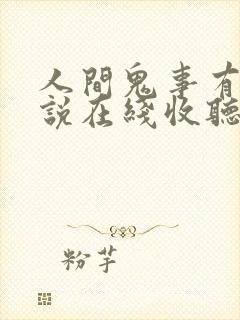 人間鬼事有
說在綫收聽
粉芋